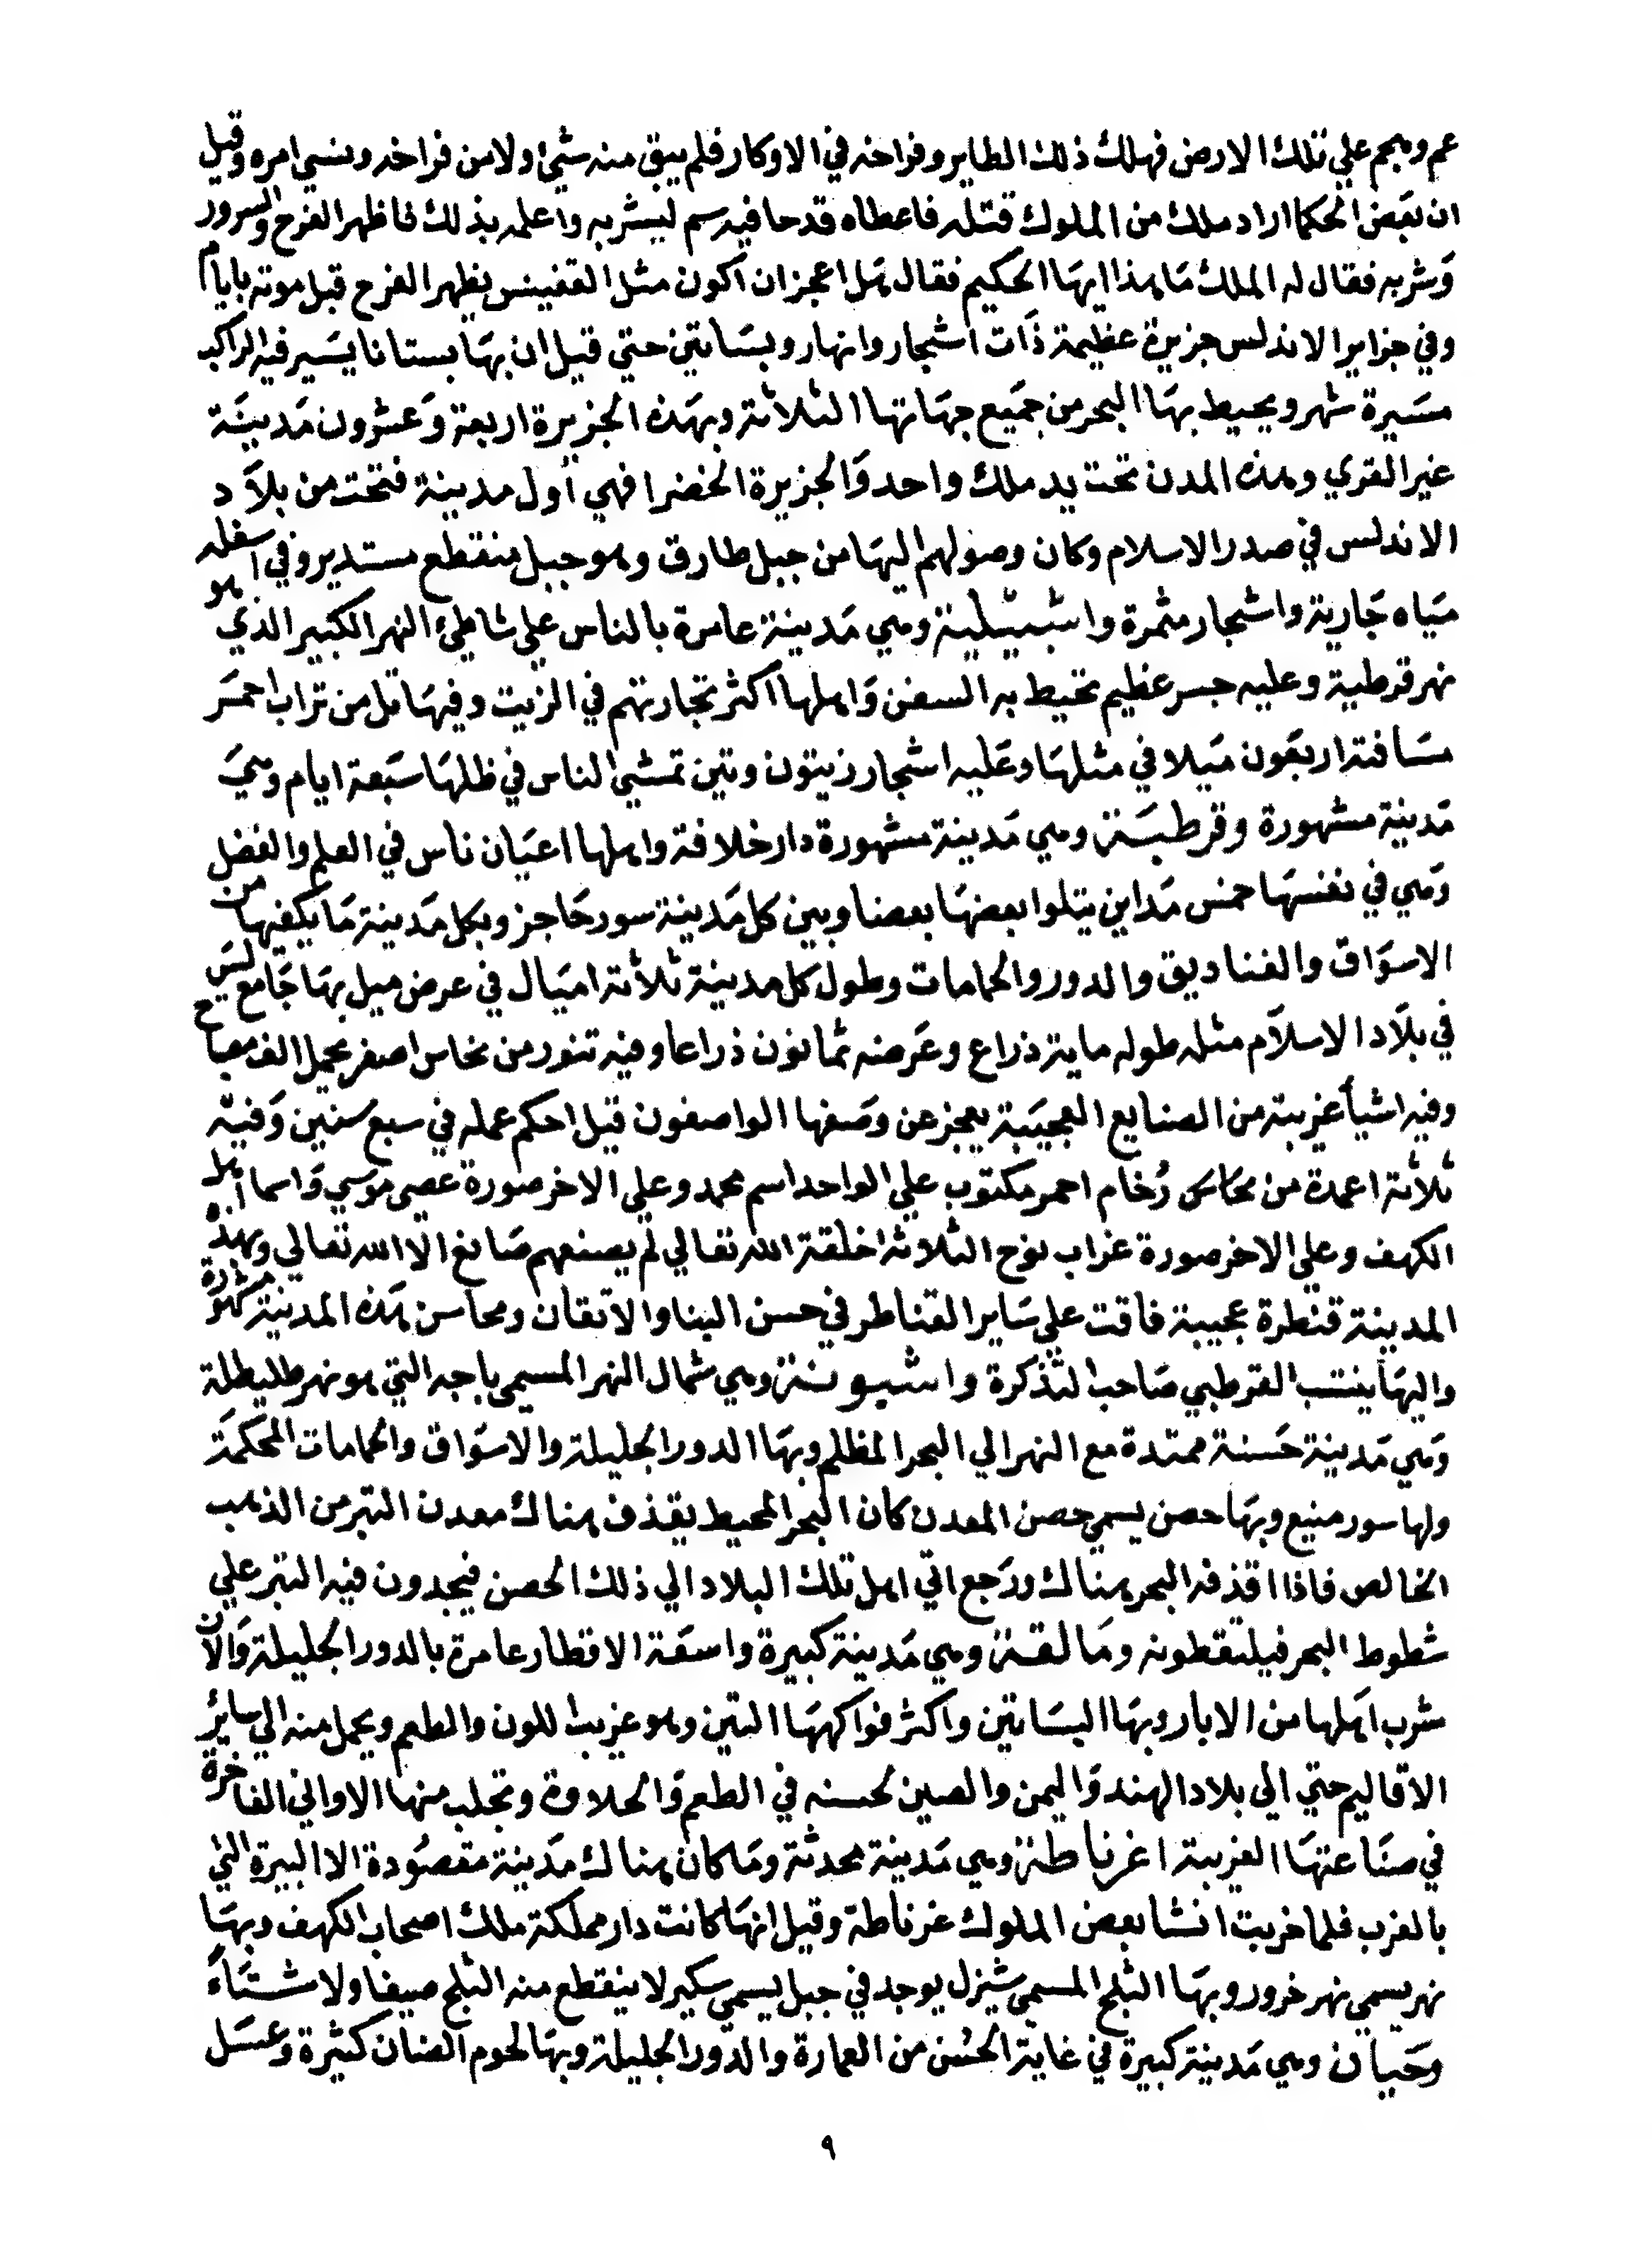 عم وهجم علي تلك الارض فهلك ذلك الطاير وفراخه في الاوكار فلم يبق منه شيئ ولا من فراخه ونسي امره وقيل
ان بعض الحكما اراد ملك من الملوك قتله فاعطاه قدحا فيه سم ليشربه واعلمه بذلك فاظهر الفرح والسرور
وَشربه فقال له الملك مَا هذا ايهَا الحكيم فقال هل اعجز ان اكون مثل القفينس يظهر الفرح قبل موته بايام
وفي جزاير الاندلس جزيرة عظيمة ذَات اشجار وانهار وبسَاتين حتي قيل ان بهَا بستانا يسَير فيه الراكب
مسَيرة شهر ويحيط بهَا البحر من جمَيع جهَاتها الثلاثة وبهَذه الجزيرة اربعة وَعشرون مَدينَة
غير القري وهذه المدن تحت يد ملك واحد وَالجزيرة الخضرا فهي أول مدينة فتحت من بلاَد
الاندلس في صدر الاسلام وكان وصولهم اليهَا من جبل طارق وهو جبل منقطع مستدير وفي اسفله
ميَاه جَارية واشجار مثمرة واشبيلية وهي مَدينة عامرة بالناس علي شاطئ النهر الكبير الذي هو
نهر قرطبة وعليه جسر عظيم تحيط به السفن وَاهلها اكثر تجارتهم في الزيت وفيهَا تل من تراب احمَر
مسَافته اربعَون ميَلا في مثلهَا وعَليه اشجار زيتون وتين تمشي الناس في ظلهَا سَبعة ايام وهيَ
مَدينة مشهورة وقرطبَة وهي مَدينة مشهورة دار خلافة واهلها اعيَان ناس في العلم والفضل
وَهي في نفسهَا خمس مَداين يتلوا بعضهَا بعضا وبين كل مَدينة سور حَاجز وبكل مَدينة مَا يكفيها من
الاسوَاق والفناديق والدور والحمامات وطول كل مدينة ثلاثة اميَال في عرض ميل بهَا جَامع ليسَ
في بلاَد الاسلاَم مثله طوله ماية ذراع وعَرضه ثمانون ذراعا وفيه تنور من نحاس اصفر يحمل الف مصباح
وفيه اشيأ غريبة من الصنايع العجيَبة يعجز عن وصَفها الواصفون قيل احكم عمله في سبع سنين وَفيه
ثلاثة اعمدة من رُخام احمر مكتوب علي الواحد اسم محمد وعلي الاخر صورة عصى موسَي وَاسما اهل
الكهف وعلي الاخر صورة غراب نوح الثلاثه خلقة الله تعالي لم يصنعهم صَانع الا الله تعالي وبهذه
المدينة قنطرة عجيبة فاقت علي سَاير القناطر في حسن البنا والاتقان ومحاسن هَذه المدينة مشهورة
واليهَا ينسب القرطبي صَاحب التذكرة واشبونة وهي شمال النهر المسمى باجه التي هو نهر طليطلة
وَهي مَدينة حَسنة ممتدة مع النهر الي البحر المظلم وبهَا الدور الجليلة والاسوَاق والحمامات المحكمَة
ولها سور منيع وبهَا حصن يسمي حصن المعدن كان البحر المحيط يقذف هناك معدن التبر من الذهب
الخالص فاذا اقذفه البحر هناك ورَجع اتي اهل تلك البلاد الي ذلك الحصن فيجدون فيه التبر علي
شطوط البحر فيلتقطونه ومَالقة وهي مَدينة كبيرة واسعَة الاقطار عامرة بالدور الجليلة وَالان
شرب اهَلها من الابار وبهَا البسَاتين واكثر فواكههَا التين وهو غريب اللون والطعم ويحمل منه الي سائر
الاقاليم حتي الى بلاد الهند وَاليمن والصين لحسنه في الطعم وَالحلاوة وتجلب منها الاواني الفاخرة
في صنَاعتهَا الغريبة اغرناطة وهي مَدينة محدثة ومَا كان هناك مَدينة مقصوُدة الا البيرة التي
بالغرب فلما خربت انشا بعض الملوك غرناطة وقيل انهَا كانت دار مملكة ملك اصحاب الكهف وبهَا
نهر يسمي نهر خرور وبهَا الثلج المسمى شيزل يوجد في جبل يسمي سكير لا ينقطع منه الثلج صيفا ولا شتَاءً
وحيَان وهي مَدينة كبيرة في غاية الحُسن من العمارة والدَور الجليلة وبهَا لحوم الضان كثيرة وعَسَل
٩